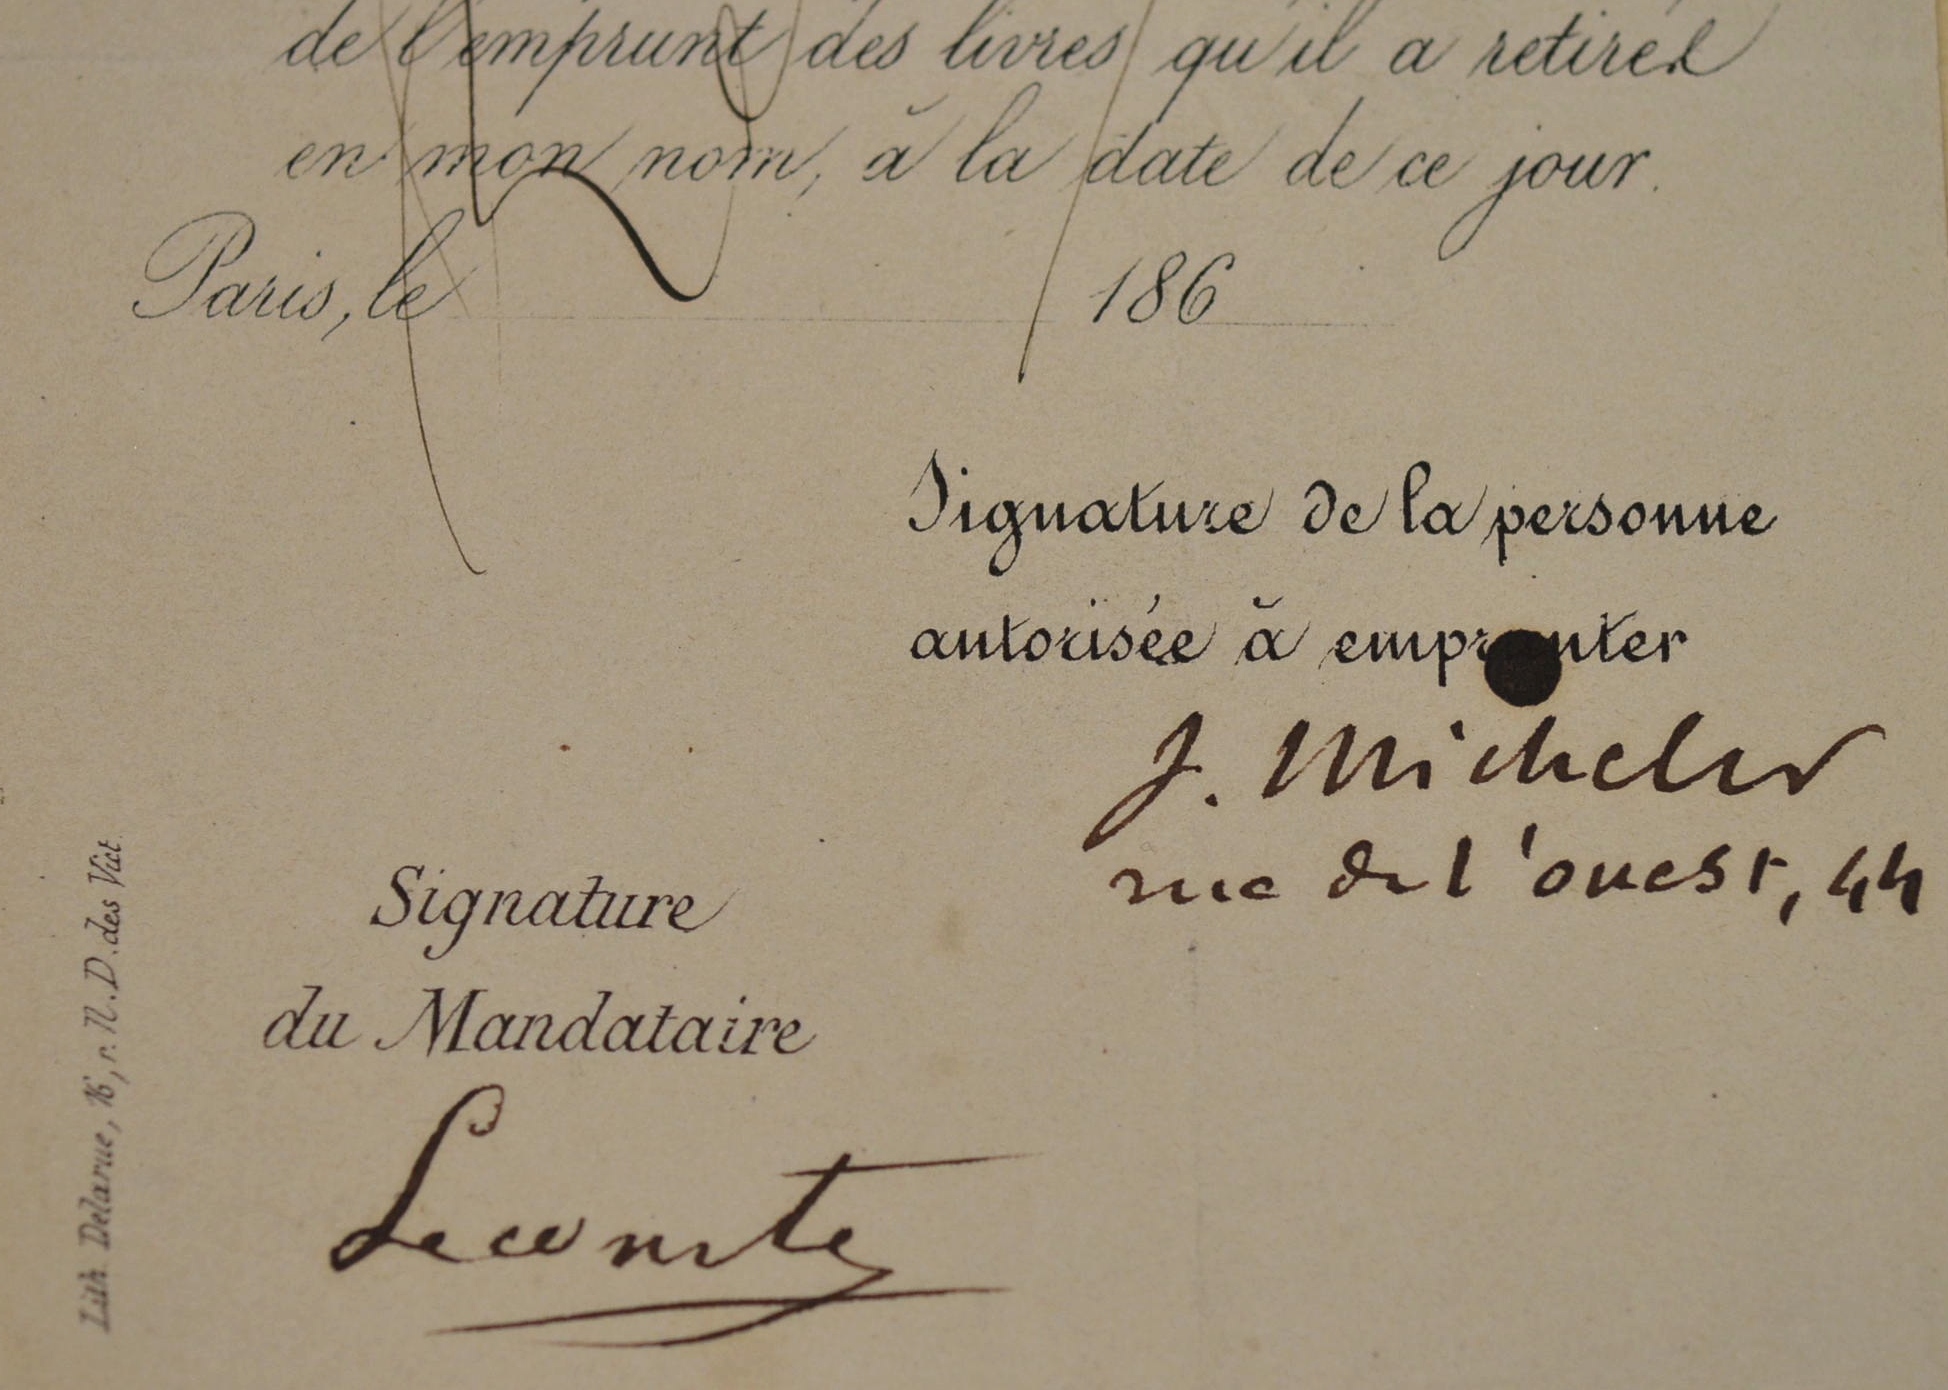 de l'emprunt des livres qu'il a retirés
en mon nom, à la date de ce jour.
Paris, le 186
Signature de la personne
autorisée à emprunter
J. Michelet
rue de l'ouest, 44
Signature
du Mandataire
Lecomte
Lith Delarue, 16, r. N. D. des Vict.